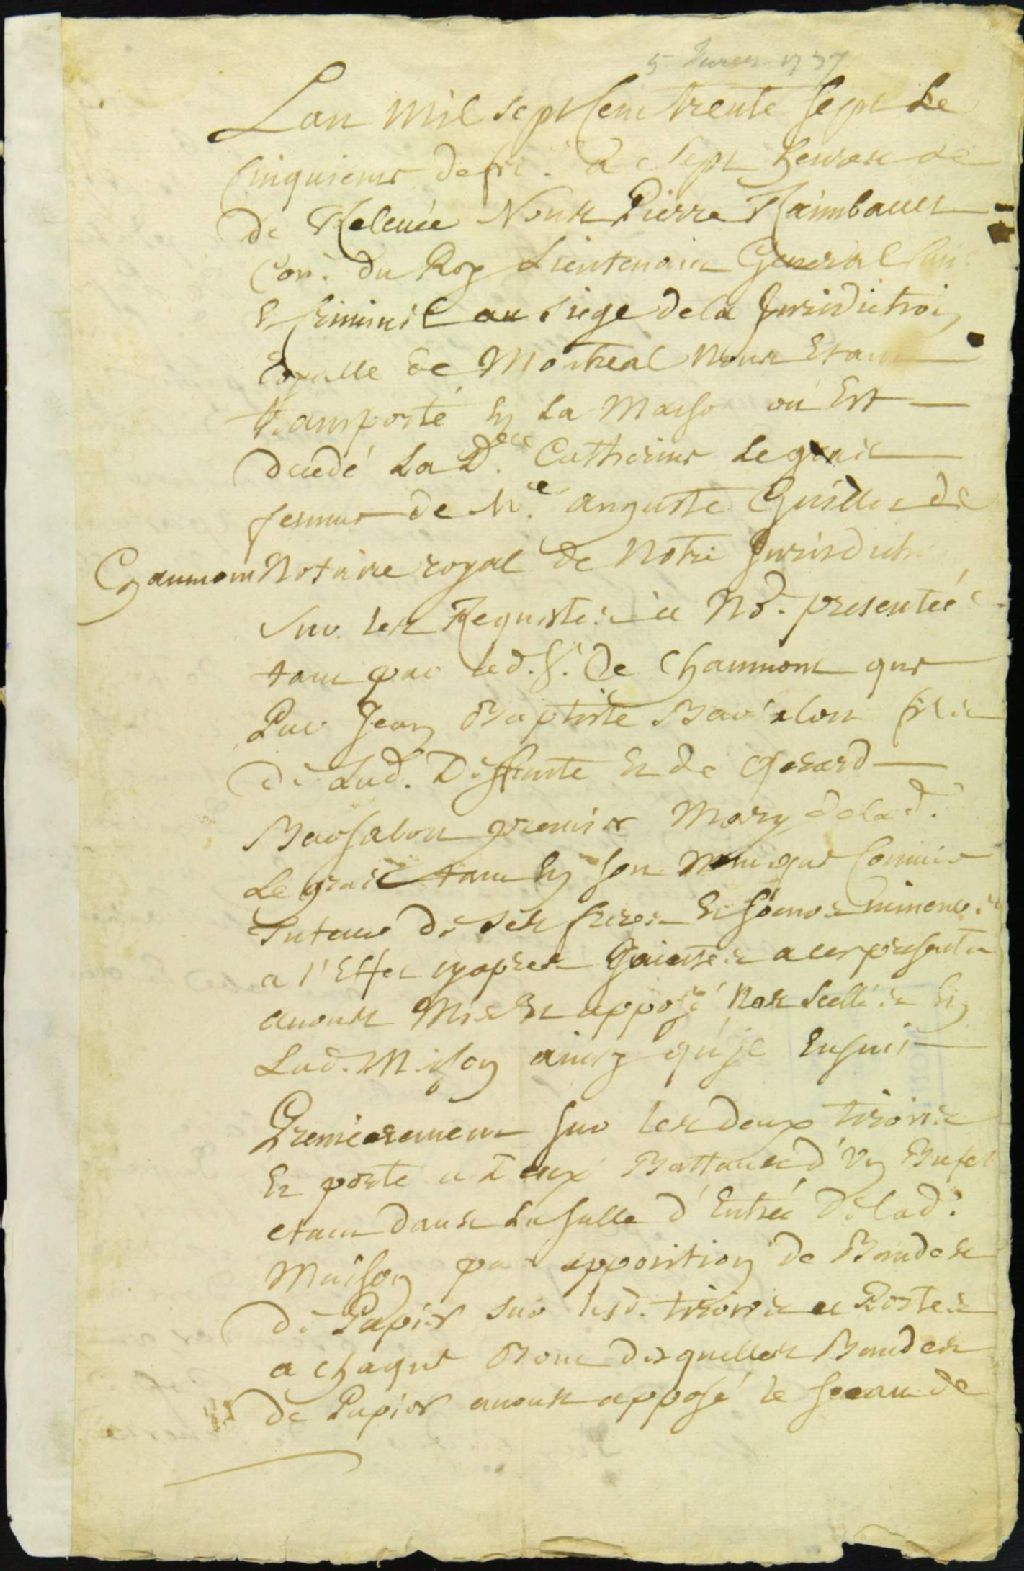 5 fevrier 1737
Lan mil sept cent trente sept Le
Cinquieme defr. a sept heures de
de Relevée Nous Pierre Raimbault
Con. du Roy Lieutenant General Civil
Et Criminel au siege de la Jurisdiction
Royalle de Montreal Nous Etant
transporté En La Maison ou Est
decedé La D.elle Catherine Legrais
femme de M.e auguste Guillet de
Chaumont Notaire royal de Notre Jurisdict
sur les Requestes a Nd. presentée
tant par led. Sr. De Chaumont que
Par Jean Baptiste Barsalou fils
De Lad. Deffunte Et de Gerard
Barsalou premier Mary de lad.
Legrais tant En son Nom que Comme
Tuteur De Ses freres Et soeurs mineurs
a l'Effet cy apres a ces presentes
avons Mis Et apposé Nos Scellés En
Lad. Maison ainsy qu'il Ensuit
Premierement sur les deux tiroirs
Et porte a deux Battans d'Un Bufet
etant dans La salle d'Entrée De lad.
Maison par apposition De Bandes
De Papier sur lesd. tiroirs et Portes
a chaque Bout desquelles Bandes
de Papier avons apposé le sceau de